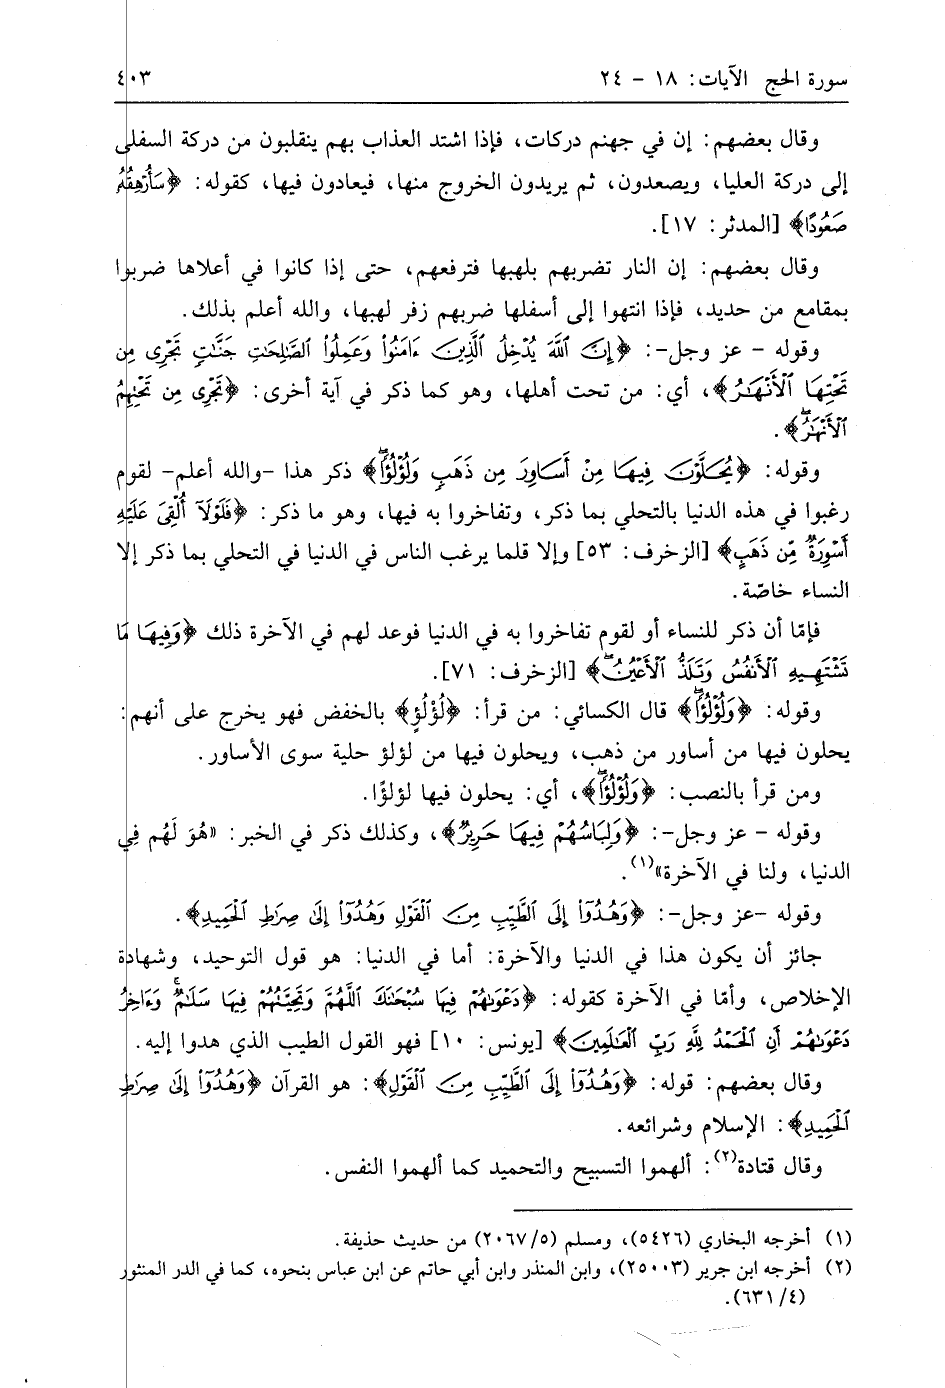 سورة الحج الآيات: ١٨ - ٢٤ ٤٠٣
وقال بعضهم: إن في جهنم دركات، فإذا اشتد العذاب بهم ينقلبون من دركة السفلى
إلى دركة العليا، ويصعدون، ثم يريدون الخروج منها، فيعادون فيها، كقوله: ﴿سَأُرْهِقُهُ
صَعُودًا﴾ [المدثر: ١٧].
وقال بعضهم: إن النار تضربهم بلهبها فترفعهم، حتى إذا كانوا في أعلاها ضربوا
بمقامع من حديد، فإذا انتهوا إلى أسفلها ضربهم زفر لهبها، والله أعلم بذلك.
وقوله - عز وجل-: ﴿إِنَّ ٱللَّهَ يُدْخِلُ ٱلَّذِينَ ءَامَنُوا۟ وَعَمِلُوا۟ ٱلصَّٰلِحَٰتِ جَنَّٰتٍ تَجْرِى مِن
تَحْتِهَا ٱلْأَنْهَٰرُ﴾، أي: من تحت أهلها، وهو كما ذكر في آية أخرى: ﴿تَجْرِى مِن تَحْتِهِمُ
ٱلْأَنْهَٰرُۖ﴾.
وقوله: ﴿يُحَلَّوْنَ فِيهَا مِنْ أَسَاوِرَ مِن ذَهَبٍ وَلُؤْلُؤًاۖ﴾ ذكر هذا -والله أعلم- لقوم
رغبوا في هذه الدنيا بالتحلي بما ذكر، وتفاخروا به فيها، وهو ما ذكر: ﴿فَلَوْلَآ أُلْقِىَ عَلَيْهِ
أَسْوِرَةٌ مِّن ذَهَبٍ﴾ [الزخرف: ٥٣] وإلا قلما يرغب الناس في الدنيا في التحلي بما ذكر إلا
النساء خاصّة.
فإمّا أن ذكر للنساء أو لقوم تفاخروا به في الدنيا فوعد لهم في الآخرة ذلك ﴿وَفِيهَا مَا
تَشْتَهِيهِ ٱلْأَنفُسُ وَتَلَذُّ ٱلْأَعْيُنُۖ﴾ [الزخرف: ٧١].
وقوله: ﴿وَلُؤْلُؤًاۖ﴾ قال الكسائي: من قرأ: ﴿لُؤْلُؤٍ﴾ بالخفض فهو يخرج على أنهم:
يحلون فيها من أساور من ذهب، ويحلون فيها من لؤلؤ حلية سوى الأساور.
ومن قرأ بالنصب: ﴿وَلُؤْلُؤًاۖ﴾، أي: يحلون فيها لؤلؤًا.
وقوله - عز وجل-: ﴿وَلِبَاسُهُمْ فِيهَا حَرِيرٌ﴾، وكذلك ذكر في الخبر: «هُوَ لَهُم فِي
الدنيا، ولنا في الآخرة»(١).
وقوله -عز وجل-: ﴿وَهُدُوٓا۟ إِلَى ٱلطَّيِّبِ مِنَ ٱلْقَوْلِ وَهُدُوٓا۟ إِلَىٰ صِرَٰطِ ٱلْحَمِيدِ﴾.
جائز أن يكون هذا في الدنيا والآخرة: أما في الدنيا: هو قول التوحيد، وشهادة
الإخلاص، وأمّا في الآخرة كقوله: ﴿دَعْوَىٰهُمْ فِيهَا سُبْحَٰنَكَ ٱللَّهُمَّ وَتَحِيَّتُهُمْ فِيهَا سَلَٰمٌۚ وَءَاخِرُ
دَعْوَىٰهُمْ أَنِ ٱلْحَمْدُ لِلَّهِ رَبِّ ٱلْعَٰلَمِينَ﴾ [يونس: ١٠] فهو القول الطيب الذي هدوا إليه.
وقال بعضهم: قوله: ﴿وَهُدُوٓا۟ إِلَى ٱلطَّيِّبِ مِنَ ٱلْقَوْلِ﴾: هو القرآن ﴿وَهُدُوٓا۟ إِلَىٰ صِرَٰطِ
ٱلْحَمِيدِ﴾: الإسلام وشرائعه.
وقال قتادة(٢): ألهموا التسبيح والتحميد كما ألهموا النفس.
(١) أخرجه البخاري (٥٤٢٦)، ومسلم (٢٠٦٧/٥) من حديث حذيفة.
(٢) أخرجه ابن جرير (٢٥٠٠٣)، وابن المنذر وابن أبي حاتم عن ابن عباس بنحوه، كما في الدر المنثور
(٦٣١/٤).